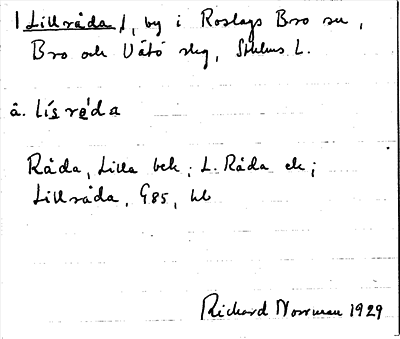 /Lillråda/, by i Roslags Bro sn,
Bro och Vätö skg, Sthlms L.
å. lísréda
Råda, Lilla bek; L. Råda ek;
Lillråda, G85, hl
Richard Norrman 1929